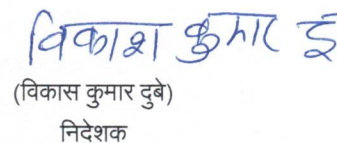 विकाश कुमार दु
(विकास कुमार दुबे)
निदेशक